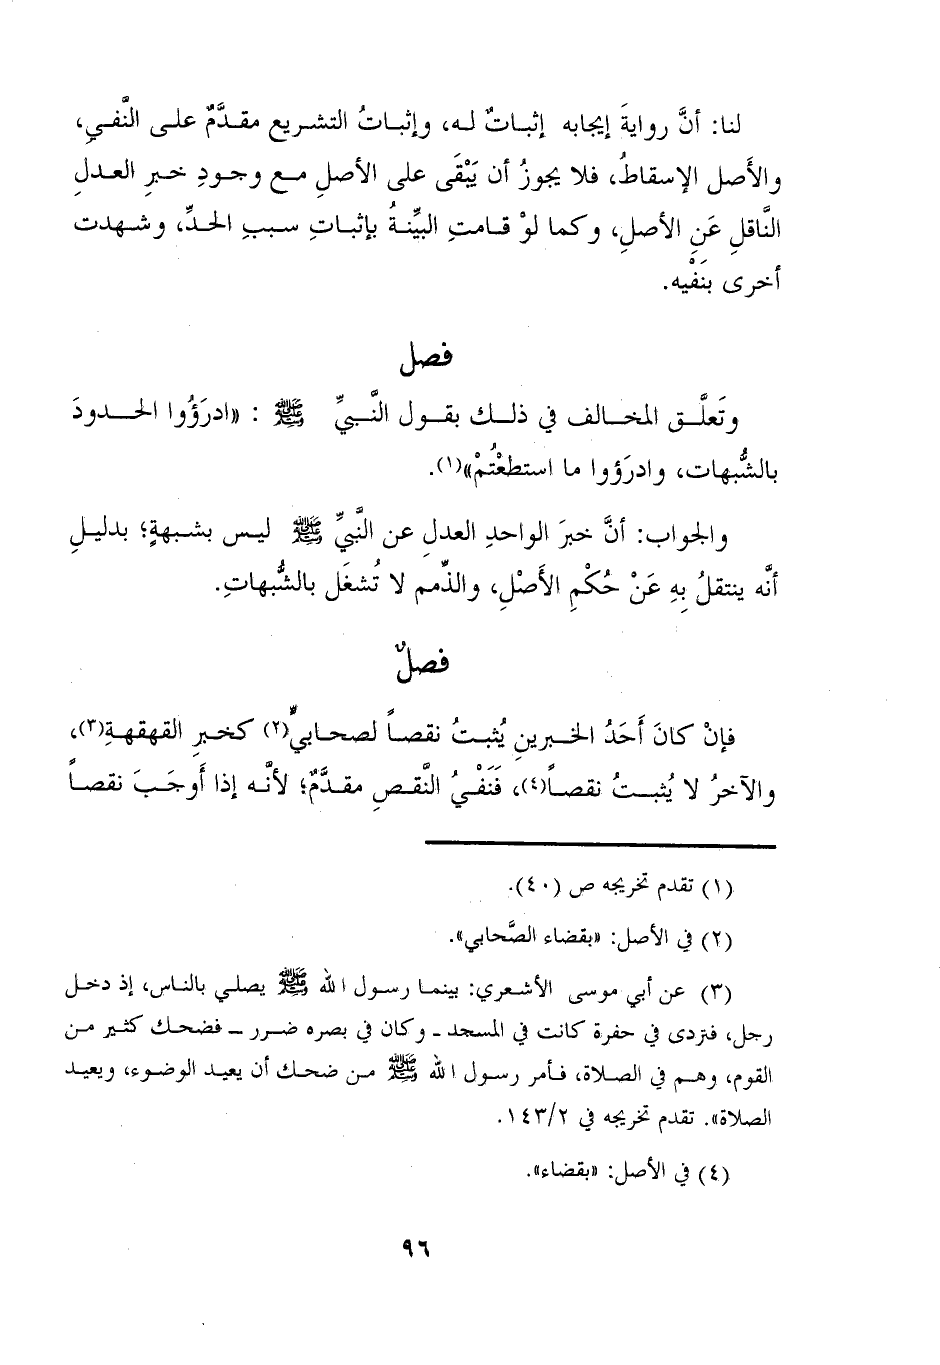 لنا: أنَّ روايةَ إيجابه إثباتٌ له، وإثباتُ التشريع مقدَّمٌ على النَّفي،
والأَصل الإسقاطُ، فلا يجوزُ أن يَبْقَى على الأصلِ مع وجودِ خبرِ العدلِ
النَّاقلِ عَنِ الأصلِ، وكما لوْ قامتِ البيِّنةُ بإثباتِ سببِ الحدِّ، وشهدت
أخرى بنَفْيِه.
فصل
وتَعلَّق المخالف في ذلك بقول النَّبيِّ ﷺ : «ادرَؤُوا الحدودَ
بالشُّبهات، وادرَؤوا ما استطعْتُمْ»(١).
والجواب: أنَّ خبرَ الواحدِ العدلِ عن النَّبيِّ ﷺ ليس بشبهةٍ؛ بدليلِ
أنَّه ينتقلُ بِهِ عَنْ حُكْمِ الأَصْلِ، والذِّمم لا تُشغَل بالشُّبهاتِ.
فصلٌ
فإنْ كانَ أَحَدُ الخبرينِ يُثبتُ نقصاً لصحابيٍّ(٢) كخبرِ القهقهةِ(٣)،
والآخرُ لا يُثبتُ نقصاً(٤)، فَنَفْيُ النَّقصِ مقدَّمٌ؛ لأنَّه إذا أَوجَبَ نقصاً
(١) تقدم تخريجه ص (٤٠).
(٢) في الأصل: «بقضاء الصَّحابي».
(٣) عن أبي موسى الأشعري: بينما رسول الله ﷺ يصلي بالناس، إذ دخل
رجل، فتردى في حفرة كانت في المسجد ـ وكان في بصره ضرر ـ فضحك كثير من
القوم، وهم في الصلاة، فأمر رسول الله ﷺ من ضحك أن يعيد الوضوء، ويعيد
الصلاة». تقدم تخريجه في ١٤٣/٢.
(٤) في الأصل: «بقضاء».
٩٦